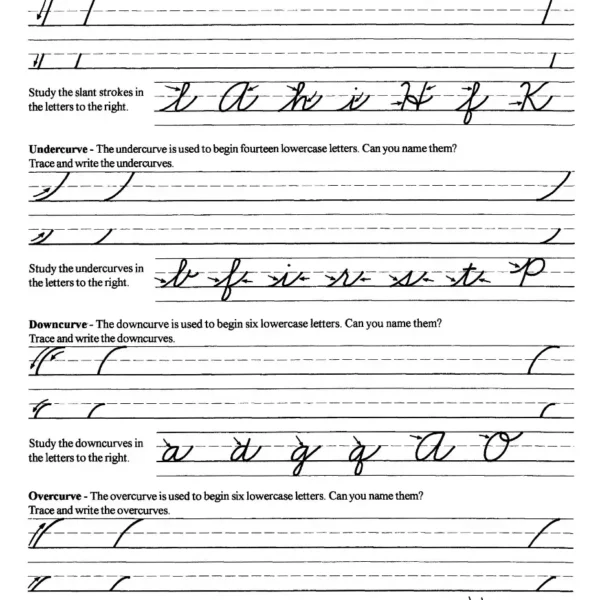 Study the slant strokes in
the letters to the right.
l A h i H f K
Undercurve - The undercurve is used to begin fourteen lowercase letters. Can you name them?
Trace and write the undercurves.
Study the undercurves in
the letters to the right.
b f i r s t P
Downcurve - The downcurve is used to begin six lowercase letters. Can you name them?
Trace and write the downcurves.
Study the downcurves in
the letters to the right.
a d g q A O
Overcurve - The overcurve is used to begin six lowercase letters. Can you name them?
Trace and write the overcurves.